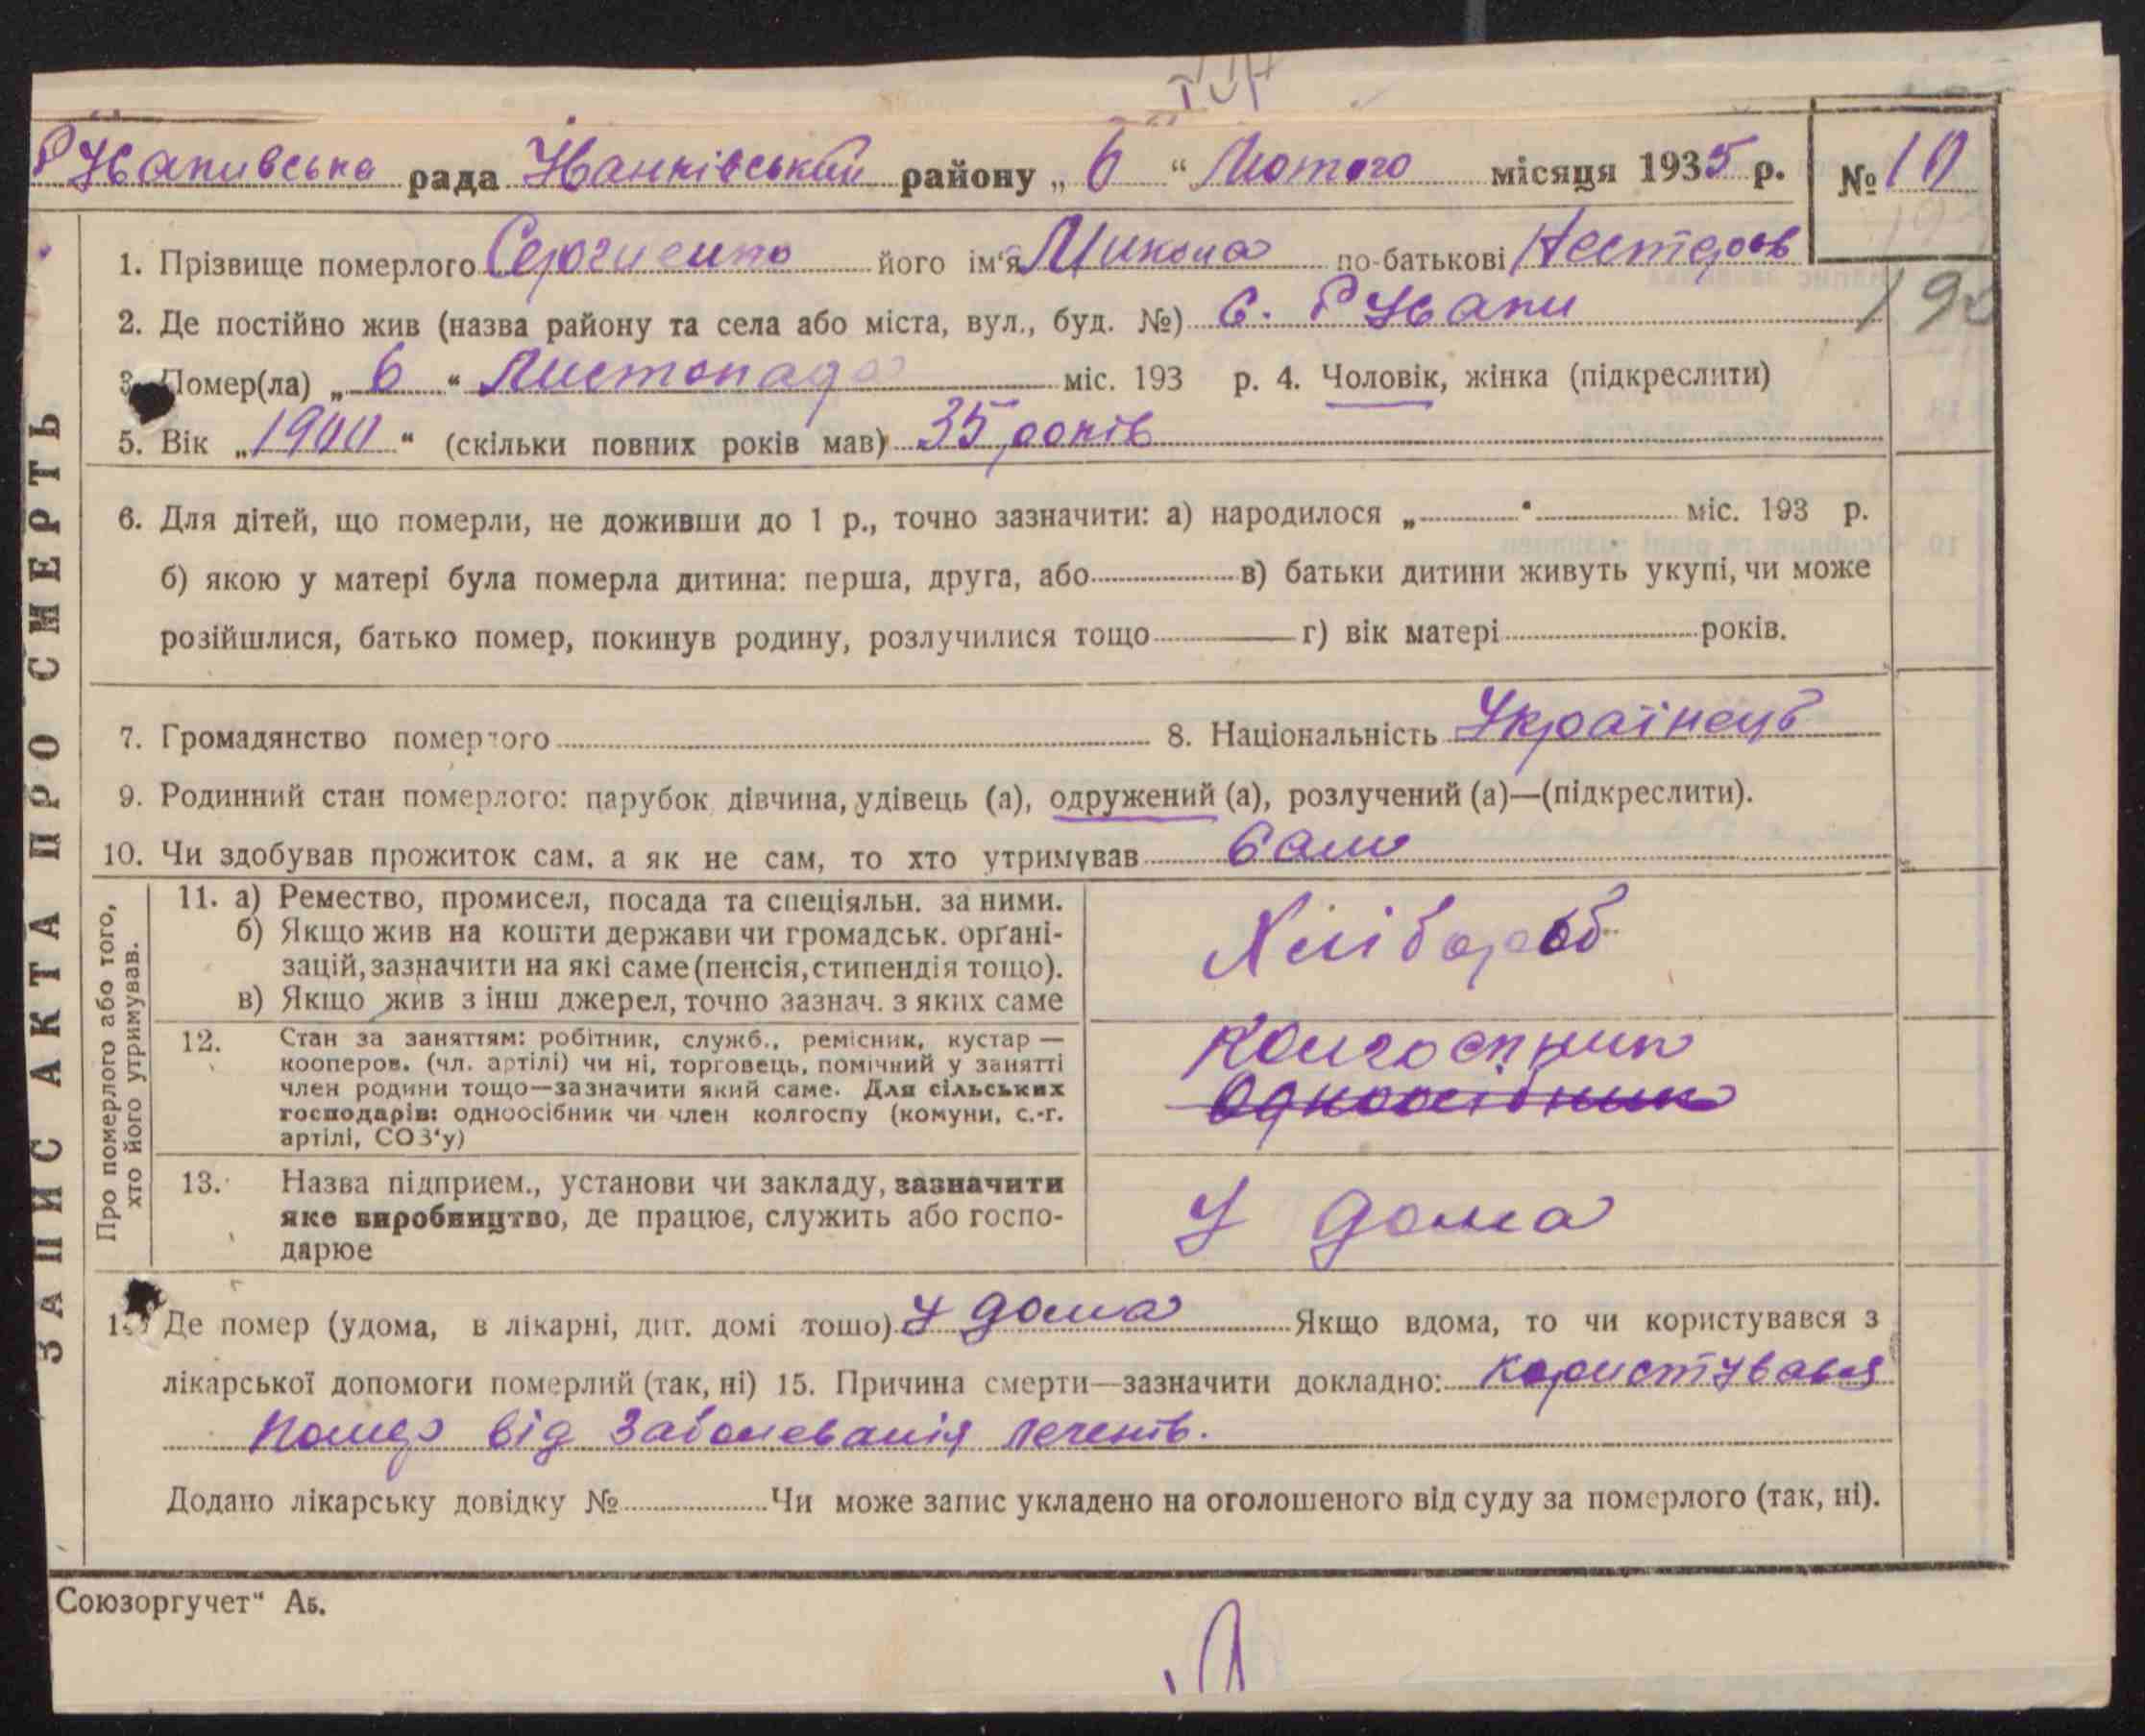 рада район у „ 6 “ Лютого місяця 1935 р. № 10
1. Прізвище померлого Сергиенко його ім'я Микола по-батькові Нестеров
2. Де постійно жив (назва району та села або міста, вул., буд. №) С.
190
3. Помер(ла) „ 6 “ Листопада міс. 193 р. 4. Чоловік, жінка (підкреслити)
5. Вік „ 1900 “ (скільки повних років мав) 35 років
6. Для дітей, що померли, не доживши до 1 р., точно зазначити: а) народилося „ “ міс. 193 р.
б) якою у матері була померла дитина: перша, друга, або в) батьки дитини живуть укупі, чи може
розійшлися, батько помер, покинув родину, розлучилися тощо г) вік матері років.
7. Громадянство померлого 8. Національність Українець
9. Родинний стан померлого: парубок дівчина, удівець (а), одружений (а), розлучений (а)—(підкреслити).
10. Чи здобував прожиток сам. а як не сам, то хто утримував Сам
Про померлого або того,
хто його утримував.
11. а) Ремество, промисел, посада та спеціяльн. за ними.
б) Якщо жив на кошти держави чи громадськ. орґані-
зацій, зазначити на які саме (пенсія, стипендія тощо).
в) Якщо жив з інш джерел, точно зазнач. з яких саме
Хлібороб
12. Стан за заняттям: робітник, служб., ремісник, кустар —
кооперов. (чл. артілі) чи ні, торговець, помічний у занятті
член родини тощо—зазначити який саме. Для сільських
господарів: одноосібник чи член колгоспу (комуни, с.-г.
артілі, СОЗ'у)
Колгоспник
Одноосібник
13. Назва підприєм., установи чи закладу, зазначити
яке виробництво, де працює, служить або госпо-
дарює
У дома
Де помер (удома, в лікарні, дит. домі тощо) У дома Якщо вдома, то чи користувався з
лікарської допомоги померлий (так, ні) 15. Причина смерти—зазначити докладно: користувався
помер від Заболеванія печенів.
Додано лікарську довідку № Чи може запис укладено на оголошеного від суду за померлого (так, ні).
ЗАПИС АКТА ПРО СМЕРТЬ
Союзоргучет“ Аб.